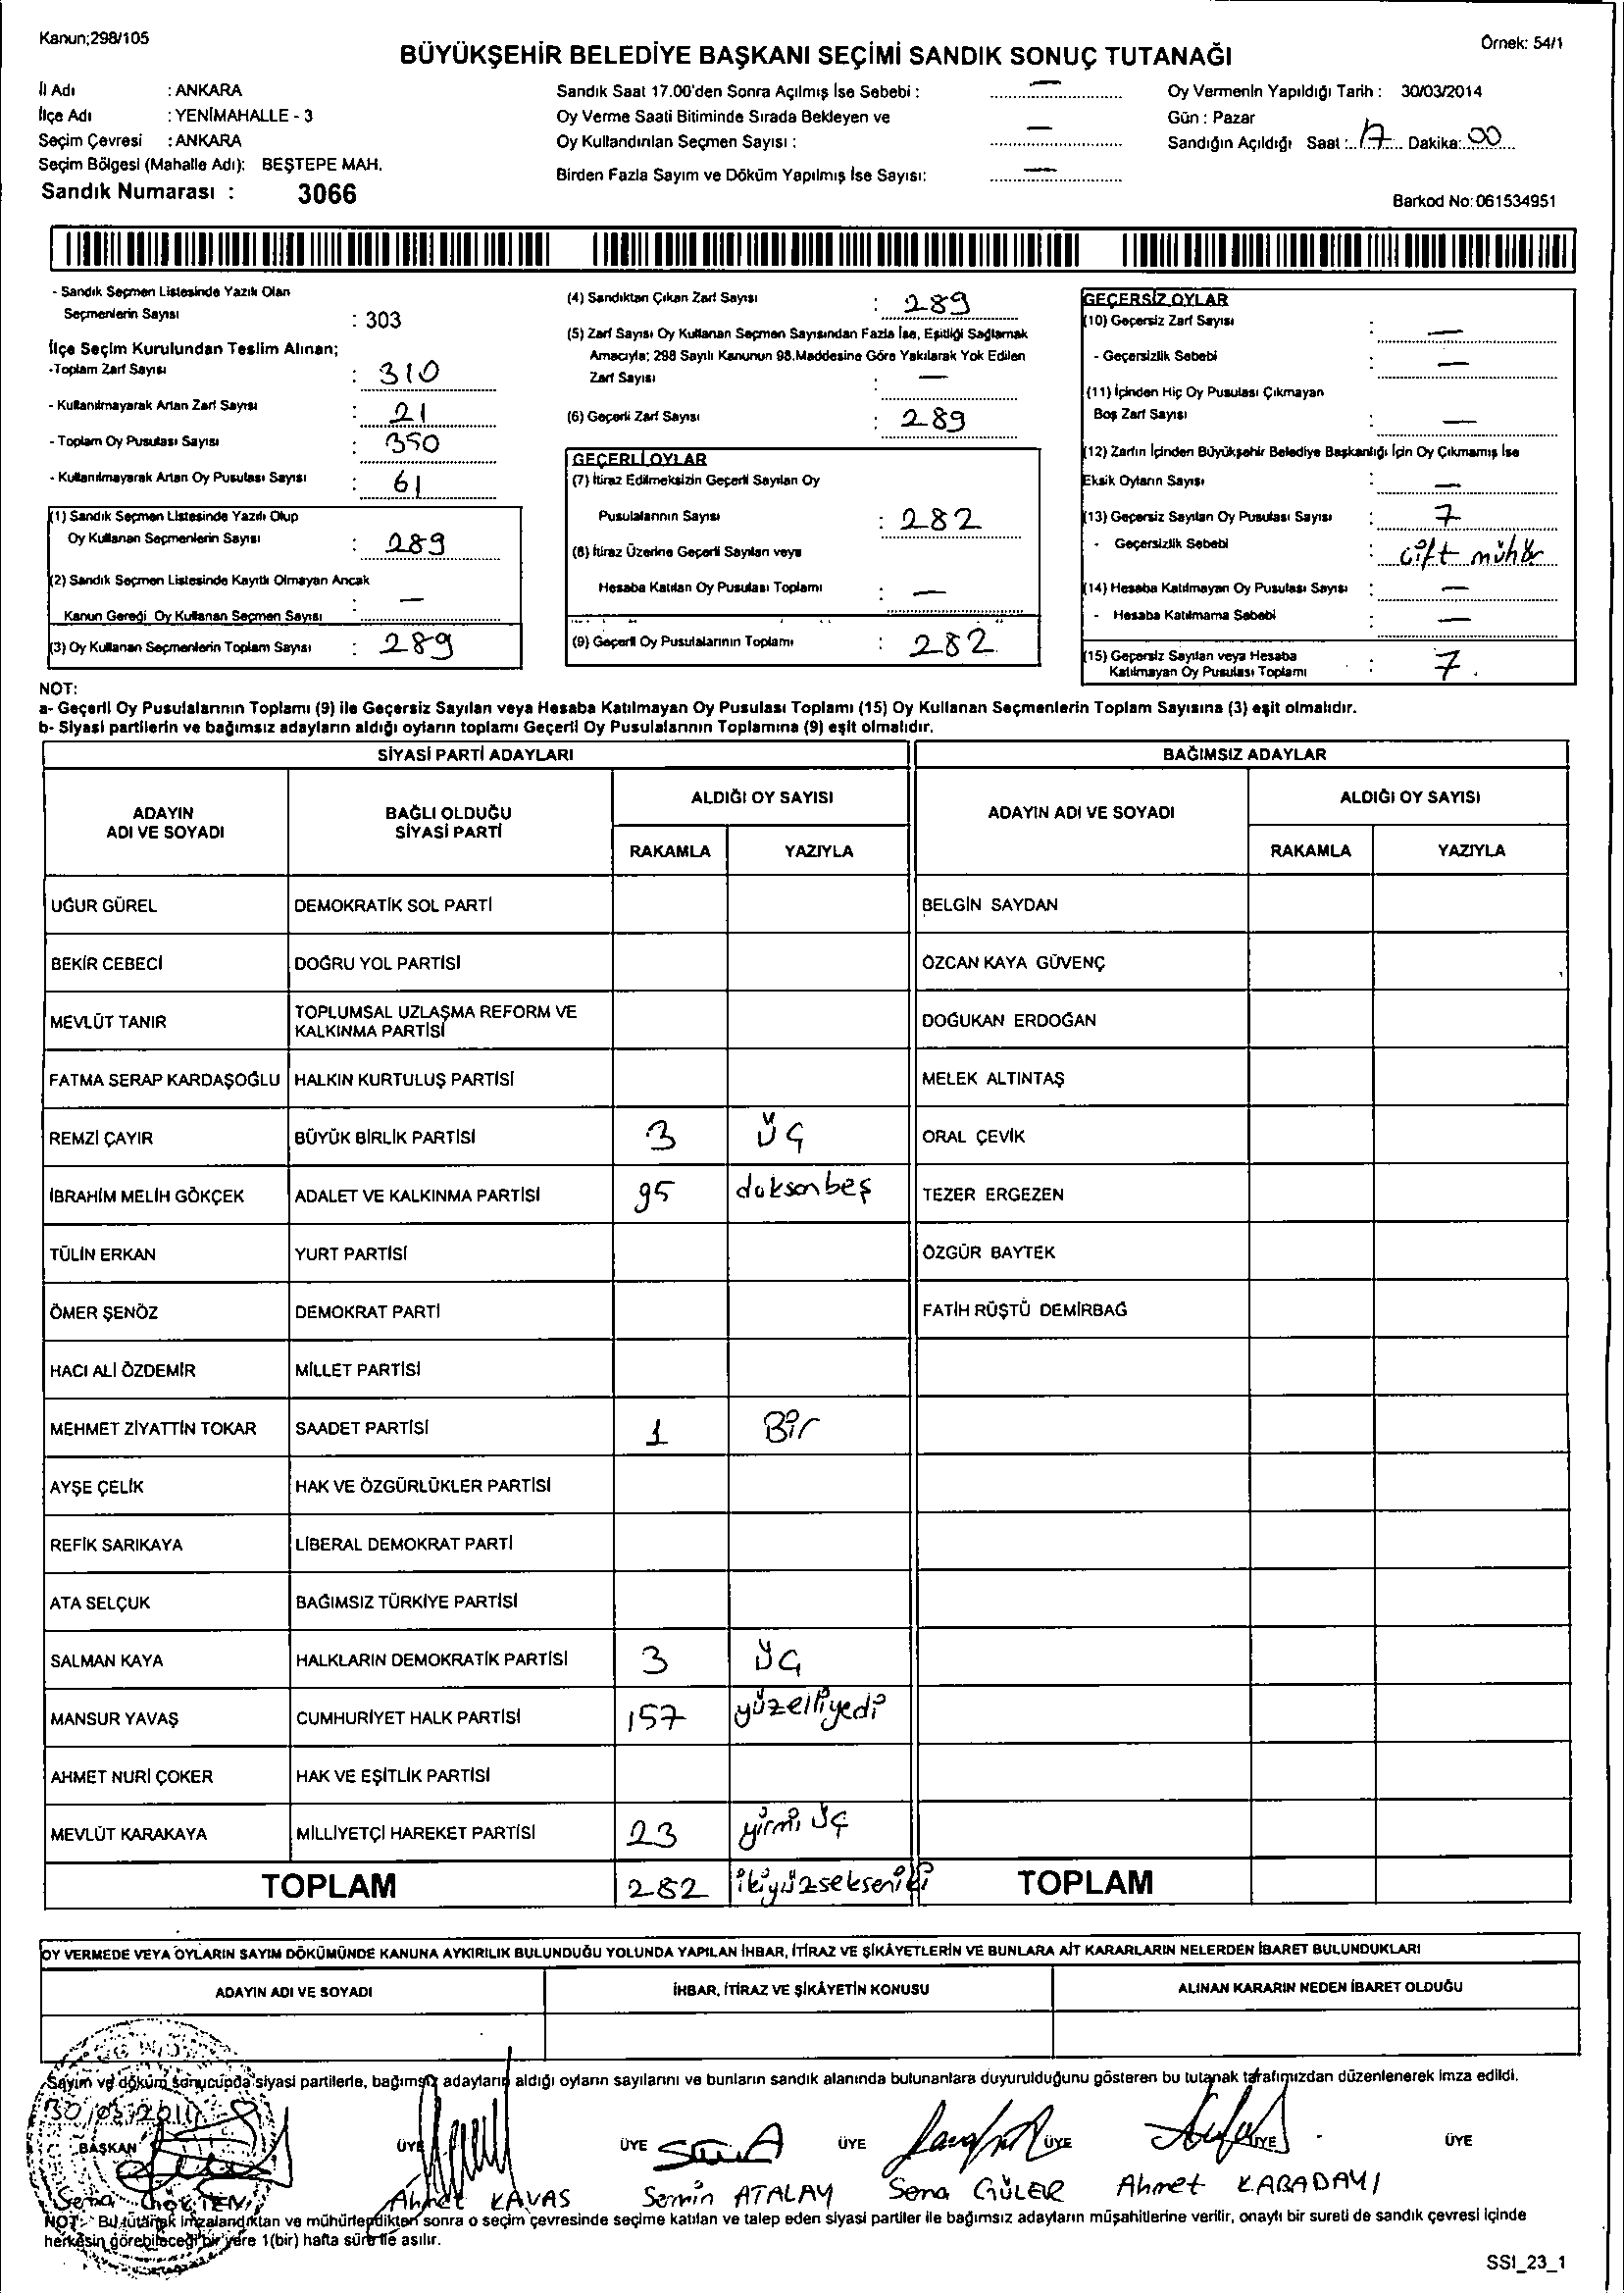 Kanun;298/105
Örnek: 54/1
BÜYÜKŞEHİR BELEDİYE BAŞKANI SEÇİMİ SANDIK SONUÇ TUTANAĞI
İl Adı : ANKARA
İlçe Adı : YENİMAHALLE - 3
Seçim Çevresi : ANKARA
Seçim Bölgesi (Mahalle Adı): BEŞTEPE MAH.
Sandık Numarası : 3066
Sandık Saat 17.00'den Sonra Açılmış İse Sebebi : —
Oy Verme Saati Bitiminde Sırada Bekleyen ve
Oy Kullandırılan Seçmen Sayısı : —
Birden Fazla Sayım ve Döküm Yapılmış İse Sayısı: —
Oy Vermenin Yapıldığı Tarih : 30/03/2014
Gün : Pazar
Sandığın Açıldığı Saat : 17 Dakika: 00
Barkod No: 061534951
- Sandık Seçmen Listesinde Yazılı Olan
Seçmenlerin Sayısı : 303
İlçe Seçim Kurulundan Teslim Alınan;
-Toplam Zarf Sayısı : 310
- Kullanılmayarak Artan Zarf Sayısı : 21
- Toplam Oy Pusulası Sayısı : 350
- Kullanılmayarak Artan Oy Pusulası Sayısı : 61
(1) Sandık Seçmen Listesinde Yazılı Olup
Oy Kullanan Seçmenlerin Sayısı : 289
(2) Sandık Seçmen Listesinde Kayıtlı Olmayan Ancak
Kanun Gereği Oy Kullanan Seçmen Sayısı : —
(3) Oy Kullanan Seçmenlerin Toplam Sayısı : 289
(4) Sandıktan Çıkan Zarf Sayısı : 289
(5) Zarf Sayısı Oy Kullanan Seçmen Sayısından Fazla İse, Eşitliği Sağlamak
Amacıyla; 298 Sayılı Kanunun 98.Maddesine Göre Yakılarak Yok Edilen
Zarf Sayısı : —
(6) Geçerli Zarf Sayısı : 289
GEÇERLİ OYLAR
(7) İtiraz Edilmeksizin Geçerli Sayılan Oy
Pusulalarının Sayısı : 282
(8) İtiraz Üzerine Geçerli Sayılan veya
Hesaba Katılan Oy Pusulası Toplamı : —
(9) Geçerli Oy Pusulalarının Toplamı : 282
GEÇERSİZ OYLAR
(10) Geçersiz Zarf Sayısı : —
- Geçersizlik Sebebi : —
(11) İçinden Hiç Oy Pusulası Çıkmayan
Boş Zarf Sayısı : —
(12) Zarfın İçinden Büyükşehir Belediye Başkanlığı İçin Oy Çıkmamış İse
Eksik Oyların Sayısı : —
(13) Geçersiz Sayılan Oy Pusulası Sayısı : 7
- Geçersizlik Sebebi : çift mühür
(14) Hesaba Katılmayan Oy Pusulası Sayısı : —
- Hesaba Katılmama Sebebi : —
(15) Geçersiz Sayılan veya Hesaba
Katılmayan Oy Pusulası Toplamı : 7.
NOT:
a- Geçerli Oy Pusulalarının Toplamı (9) ile Geçersiz Sayılan veya Hesaba Katılmayan Oy Pusulası Toplamı (15) Oy Kullanan Seçmenlerin Toplam Sayısına (3) eşit olmalıdır.
b- Siyasi partilerin ve bağımsız adayların aldığı oyların toplamı Geçerli Oy Pusulalarının Toplamına (9) eşit olmalıdır.
SİYASİ PARTİ ADAYLARI BAĞIMSIZ ADAYLAR
ADAYIN ADI VE SOYADI BAĞLI OLDUĞU SİYASİ PARTİ ALDIĞI OY SAYISI ADAYIN ADI VE SOYADI ALDIĞI OY SAYISI
RAKAMLA YAZIYLA RAKAMLA YAZIYLA
UĞUR GÜREL DEMOKRATİK SOL PARTİ BELGİN SAYDAN
BEKİR CEBECİ DOĞRU YOL PARTİSİ ÖZCAN KAYA GÜVENÇ
MEVLÜT TANIR TOPLUMSAL UZLAŞMA REFORM VE KALKINMA PARTİSİ DOĞUKAN ERDOĞAN
FATMA SERAP KARDAŞOĞLU HALKIN KURTULUŞ PARTİSİ MELEK ALTINTAŞ
REMZİ ÇAYIR BÜYÜK BİRLİK PARTİSİ 3 üç ORAL ÇEVİK
İBRAHİM MELİH GÖKÇEK ADALET VE KALKINMA PARTİSİ 95 doksanbeş TEZER ERGEZEN
TÜLİN ERKAN YURT PARTİSİ ÖZGÜR BAYTEK
ÖMER ŞENÖZ DEMOKRAT PARTİ FATİH RÜŞTÜ DEMİRBAĞ
HACI ALİ ÖZDEMİR MİLLET PARTİSİ
MEHMET ZİYATTİN TOKAR SAADET PARTİSİ 1 Bir
AYŞE ÇELİK HAK VE ÖZGÜRLÜKLER PARTİSİ
REFİK SARIKAYA LİBERAL DEMOKRAT PARTİ
ATA SELÇUK BAĞIMSIZ TÜRKİYE PARTİSİ
SALMAN KAYA HALKLARIN DEMOKRATİK PARTİSİ 3 üç
MANSUR YAVAŞ CUMHURİYET HALK PARTİSİ 157 yüzelliyedi
AHMET NURİ ÇOKER HAK VE EŞİTLİK PARTİSİ
MEVLÜT KARAKAYA MİLLİYETÇİ HAREKET PARTİSİ 23 yirmi üç
TOPLAM 282 ikiyüzsekseniki TOPLAM
OY VERMEDE VEYA OYLARIN SAYIM DÖKÜMÜNDE KANUNA AYKIRILIK BULUNDUĞU YOLUNDA YAPILAN İHBAR, İTİRAZ VE ŞİKÂYETLERİN VE BUNLARA AİT KARARLARIN NELERDEN İBARET BULUNDUKLARI
ADAYIN ADI VE SOYADI İHBAR, İTİRAZ VE ŞİKÂYETİN KONUSU ALINAN KARARIN NEDEN İBARET OLDUĞU
Sayım ve döküm sonucunda siyasi partilerle, bağımsız adayların aldığı oyların sayılarını ve bunların sandık alanında bulunanlara duyurulduğunu gösteren bu tutanak tarafımızdan düzenlenerek imza edildi.
30/03/2014
BAŞKAN ÜYE ÜYE ÜYE ÜYE ÜYE ÜYE
Sema GÖKTEN Ahmet KAVAS Semin ATALAY Sena GÜLER Ahmet KARADAYI
NOT: Bu tutanak imzalandıktan ve mühürlendikten sonra o seçim çevresinde seçime katılan ve talep eden siyasi partiler ile bağımsız adayların müşahitlerine verilir, onaylı bir sureti de sandık çevresi içinde
herkesin görebileceği bir yere 1(bir) hafta süre ile asılır.
SSI_23_1